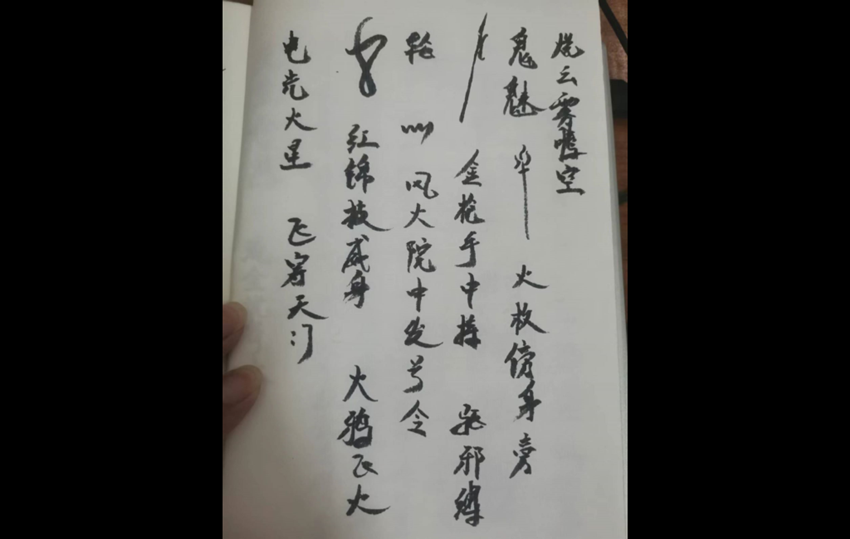 烧云雾噬空
鬼魅 火枚傍身旁
金花手中摔 驱邪缚
轮 风火院中发号令
红锦披威身 火鸦飞火
电光火星 飞穿天门